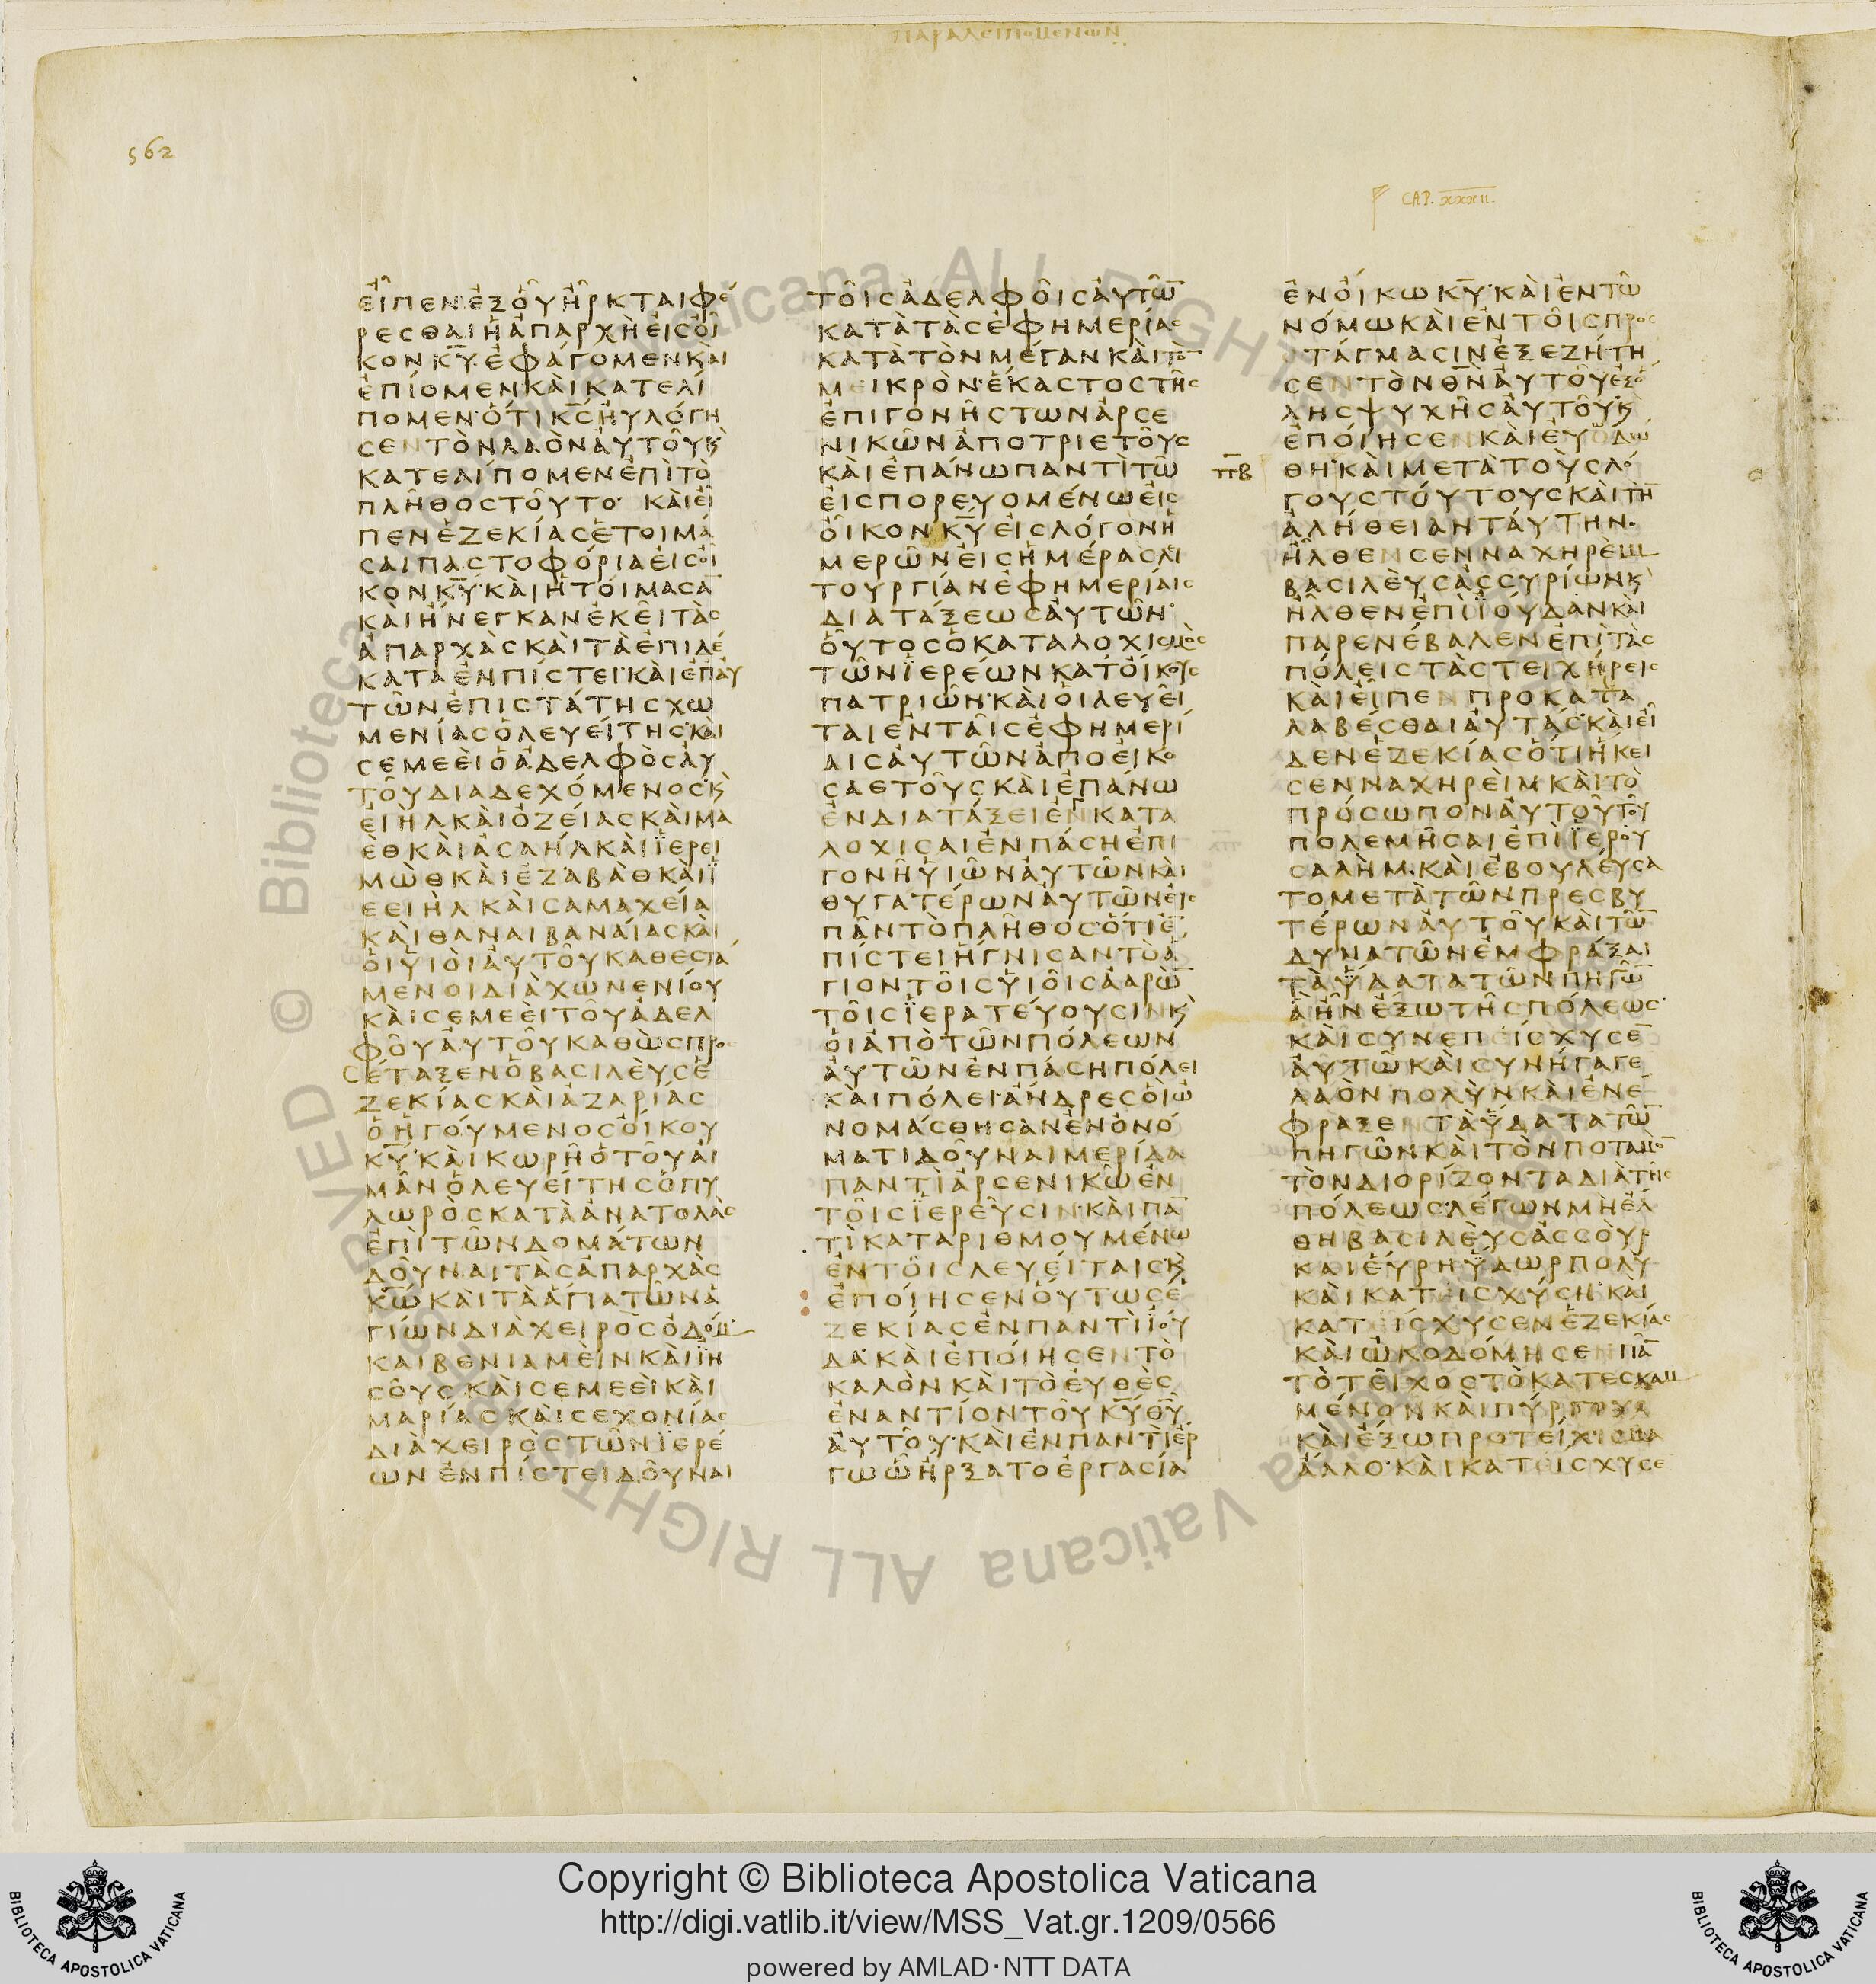 ΠΑΡΑΛΕΙΠΟΜΕΝΩΝ
562
CAP. XXXII.
ΕἶΠΕΝ ἘΞ ΟΥ ἮΡΚΤΑΙ ΦΈ
ΡΕΣΘΑΙ Ἡ ἈΠΑΡΧῊ ΕἸΣ ΟἾ
ΚΟΝ Κ̅Υ̅· ἘΦΆΓΟΜΕΝ ΚΑῚ
ἘΠΊΟΜΕΝ ΚΑῚ ΚΑΤΕΛΊ
ΠΟΜΕΝ· ὍΤΙ Κ̅Σ̅ ΗΥΛΌΓΗ
ΣΕΝ ΤῸΝ ΛΑῸΝ ΑΥΤΟΥ Ϗ
ΚΑΤΕΛΊΠΟΜΕΝ ἘΠῚ ΤῸ
ΠΛΗΘΟΣ ΤΟΥΤΟ· ΚΑῚ ΕἾ
ΠΕΝ ἘΖΕΚΊΑΣ ἙΤΟΙΜΆ
ΣΑΙ ΠΑΣΤΟΦΌΡΙΑ ΕἸΣ ΟἾ
ΚΟΝ Κ̅Υ̅· ΚΑῚ ἩΤΟΊΜΑΣΑ̅
ΚΑῚ ἬΝΕΓΚΑΝ ἘΚΕΙ ΤᾺΣ
ἈΠΑΡΧᾺΣ ΚΑῚ ΤᾺ ἘΠΙΔΈ
ΚΑΤΑ ἘΝ ΠΊΣΤΕΙ· ΚΑῚ ἘΠ ΑΥ
ΤΩΝ ἘΠΙΣΤΆΤΗΣ ΧΩ
ΜΕΝΊΑΣ Ὁ ΛΕΥΕΊΤΗΣ· ΚΑῚ
ΣΕΜΕΕῚ Ὁ ἈΔΕΛΦῸΣ ΑΥ
ΤΟΥ ΔΙΑΔΕΧΌΜΕΝΟΣ· Ϗ
ΕΙΗΛ ΚΑῚ ὈΖΕΊΑΣ ΚΑῚ ΜΑ
ΕΘ ΚΑῚ ἈΣΑΗΛ ΚΑῚ ΪΕΡΕΙ
ΜῺΘ ΚΑῚ ἘΖΑΒᾺΘ ΚΑῚ Ϊ
ΕΕΙΗΛ ΚΑῚ ΣΑΜΑΧΕΊΑ
ΚΑῚ ΘΑΝΑΙ ΒΑΝΑΊΑΣ ΚΑῚ
ΟἹ ΥἹΟῚ ΑΥΤΟΥ ΚΑΘΕΣΤΑ
ΜΕΝΟΙ ΔΙᾺ ΧΩΝΕΝΊΟΥ
ΚΑῚ ΣΕΜΕΕῚ ΤΟΥ ἈΔΕΛ
ΦΟΥ ΑΥΤΟΥ ΚΑΘῺΣ ΠΡΟ
ΣΈΤΑΞΕΝ Ὁ ΒΑΣΙΛΕῪΣ Ἐ
ΖΕΚΊΑΣ ΚΑῚ ἈΖΑΡΊΑΣ
Ὁ ἩΓΟΎΜΕΝΟΣ ΟἼΚΟΥ
Κ̅Υ̅· ΚΑῚ ΚΩΡΗ Ὁ ΤΟΥ ΑΙ
ΜᾺΝ Ὁ ΛΕΥΕΊΤΗΣ Ὁ ΠΥ
ΛΩΡῸΣ ΚΑΤᾺ ἈΝΑΤΟΛᾺΣ
ἘΠῚ ΤΩΝ ΔΟΜΆΤΩΝ
ΔΟΥΝΑΙ ΤᾺΣ ἈΠΑΡΧᾺΣ
Κ̅Ω̅ ΚΑῚ ΤᾺ ἍΓΙΑ ΤΩΝ Ἁ
ΓΊΩΝ ΔΙᾺ ΧΕΙΡῸΣ ὈΔΌΜ
ΚΑΙ ΒΕΝΙΑΜΕῚΝ ΚΑῚ ΪΗ
ΣΟΥΣ ΚΑῚ ΣΕΜΕΕῚ ΚΑῚ
ΜΑΡΊΑΣ ΚΑῚ ΣΕΧΟΝΊΑΣ
ΔΙᾺ ΧΕΙΡῸΣ ΤΩΝ ΪΕΡΈ
ΩΝ ἘΝ ΠΊΣΤΕΙ ΔΟΥΝΑΙ
ΤΟΙΣ ἈΔΕΛΦΟΙΣ ΑΥΤΩ̅
ΚΑΤᾺ ΤᾺΣ ἘΦΗΜΕΡΊΑΣ
ΚΑΤᾺ ΤῸΝ ΜΈΓΑΝ ΚΑῚ ΤῸ̅
ΜΕΙΚΡῸΝ· ἝΚΑΣΤΟΣ ΤΗΣ
ἘΠΙΓΟΝΗΣ ΤΩΝ ἈΡΣΕ
ΝΙΚΩΝ ἈΠΟ ΤΡΙΕΤΟΥΣ
ΚΑῚ ἘΠΆΝΩ ΠΑΝΤῚ ΤΩ
ΕἸΣΠΟΡΕΥΟΜΈΝΩ ΕἸΣ
ΟἾΚΟΝ Κ̅Υ̅ ΕἸΣ ΛΌΓΟΝ Ἡ
ΜΕΡΩΝ ΕἸΣ ἩΜΈΡΑΣ ΛΙ
ΤΟΥΡΓΊΑΝ ἘΦΗΜΕΡΊΑΙΣ
ΔΙΑΤΆΞΕΩΣ ΑΥΤΩΝ·
ΟΥΤΟΣ Ὁ ΚΑΤΑΛΟΧΙΣΜῸΣ
ΤΩΝ ΪΕΡΈΩΝ ΚΑΤ ΟἼΚΟΥΣ
ΠΑΤΡΙΩΝ· ΚΑῚ ΟἹ ΛΕΥΕΙ
ΤΑΙ ἘΝ ΤΑΙΣ ἘΦΗΜΕΡΊ
ΑΙΣ ΑΥΤΩΝ ἈΠΟ ΕἸΚΟ
ΣΑΕΤΟΥΣ ΚΑῚ ἘΠΆΝΩ
ἘΝ ΔΙΑΤΆΞΕΙ ἘΝ ΚΑΤΑ
ΛΟΧΙΣΑΙ ἘΝ ΠΆΣΗ ἘΠΙ
ΓΟΝΗ ΥἹΩΝ ΑΥΤΩΝ ΚΑῚ
ΘΥΓΑΤΈΡΩΝ ΑΥΤΩΝ ΕἸΣ
ΠΑΝ ΤῸ ΠΛΗΘΟΣ· ὍΤΙ Ἐ̅
ΠΊΣΤΕΙ ἭΓΝΙΣΑΝ ΤῸ Ἅ
ΓΙΟΝ ΤΟΙΣ ΥἹΟΙΣ ἈΑΡῺ̅
ΤΟΙΣ ΪΕΡΑΤΕΎΟΥΣΙΝ Ϗ
ΟἹ ἈΠῸ ΤΩΝ ΠΌΛΕΩΝ
ΑΥΤΩΝ ἘΝ ΠΆΣΗ ΠΌΛΕΙ
ΚΑῚ ΠΌΛΕΙ· ἌΝΔΡΕΣ ΟἹ Ὠ
ΝΟΜΆΣΘΗΣΑΝ ἘΝ ὈΝΌ
ΜΑΤΙ ΔΟΥΝΑΙ ΜΕΡΊΔΑ
ΠΑΝΤῚ ἈΡΣΕΝΙΚΩ ἘΝ
ΤΟΙΣ ΪΕΡΕΥΣΙΝ· ΚΑῚ ΠΑ̅
ΤῚ ΚΑΤΑΡΙΘΜΟΥΜΈΝΩ
ἘΝ ΤΟΙΣ ΛΕΥΕΊΤΑΙΣ· Ϗ
ἘΠΟΊΗΣΕΝ ΟΥΤΩΣ Ἐ
ΖΕΚΊΑΣ ἘΝ ΠΑΝΤῚ ΪΟΎ
ΔΑ· ΚΑῚ ἘΠΟΊΗΣΕΝ ΤῸ
ΚΑΛῸΝ ΚΑῚ ΤῸ ΕΥΘῈΣ
ἘΝΑΝΤΊΟΝ ΤΟΥ Κ̅Υ̅ Θ̅Υ̅
ΑΥΤΟΥ· ΚΑῚ ἘΝ ΠΑΝΤῚ ἘΡ
ΓΩ Ω ἬΡΞΑΤΟ ἘΡΓΑΣΊΑ
ἘΝ ΟἼΚΩ Κ̅Υ̅· ΚΑῚ ἘΝ ΤΩ
ΝΌΜΩ ΚΑῚ ἘΝ ΤΟΙΣ ΠΡΟΣ
ΤΆΓΜΑΣΙΝ ἘΞΕΖΉΤΗ
ΣΕΝ ΤῸΝ Θ̅Ν̅ ΑΥΤΟΥ ἘΞ Ὅ
ΛΗΣ ΨΥΧΗΣ ΑΥΤΟΥ· Ϗ
ἘΠΟΊΗΣΕΝ ΚΑῚ ΕΥΟΔΏ
Π̅Β̅ ΘΗ· ΚΑῚ ΜΕΤᾺ ΤΟῪΣ ΛΌ
ΓΟΥΣ ΤΟΎΤΟΥΣ ΚΑῚ ΤῊ̅
ἈΛΉΘΕΙΑΝ ΤΑΎΤΗΝ·
ἮΛΘΕΝ ΣΕΝΝΑΧΗΡΕῚΜ
ΒΑΣΙΛΕῪΣ ἈΣΣΥΡΊΩΝ Ϗ
ἮΛΘΕΝ ἘΠῚ ΪΟΎΔΑΝ ΚΑῚ
ΠΑΡΕΝΈΒΑΛΕΝ ἘΠῚ ΤᾺΣ
ΠΌΛΕΙΣ ΤᾺΣ ΤΕΙΧΉΡΕΙΣ
ΚΑῚ ΕἾΠΕΝ ΠΡΟΚΑΤΑ
ΛΑΒΈΣΘΑΙ ΑΥΤΆΣ· ΚΑῚ ΕἾ
ΔΕΝ ἘΖΕΚΊΑΣ ὍΤΙ ἭΚΕΙ
ΣΕΝΝΑΧΗΡΕῚΜ ΚΑῚ ΤῸ
ΠΡΌΣΩΠΟΝ ΑΥΤΟΥ ΤΟΥ
ΠΟΛΕΜΗΣΑΙ ἘΠῚ ΪΕΡΟΥ
ΣΑΛΉΜ· ΚΑῚ ἘΒΟΥΛΕΎΣΑ
ΤΟ ΜΕΤᾺ ΤΩΝ ΠΡΕΣΒΥ
ΤΈΡΩΝ ΑΥΤΟΥ ΚΑῚ ΤΩ̅
ΔΥΝΑΤΩΝ ἘΜΦΡΆΞΑΙ
ΤᾺ ΥΔΑΤΑ ΤΩΝ ΠΗΓΩ̅
Ἃ ἮΝ ἜΞΩ ΤΗΣ ΠΌΛΕΩΣ·
ΚΑῚ ΣΥΝΕΠΕΊΣΧΥΣΕ̅
ΑΥΤΩ ΚΑῚ ΣΥΝΉΓΑΓΕ
ΛΑῸΝ ΠΟΛῪΝ ΚΑῚ ἘΝΈ
ΦΡΑΞΕΝ ΤᾺ ΥΔΑΤΑ ΤΩ̅
ΠΗΓΩΝ· ΚΑῚ ΤῸΝ ΠΟΤΑΜῸ̅
ΤῸΝ ΔΙΟΡΊΖΟΝΤΑ ΔΙᾺ ΤΗΣ
ΠΌΛΕΩΣ· ΛΈΓΩΝ ΜῊ ἜΛ
ΘΗ ΒΑΣΙΛΕῪΣ ἈΣΣΟῪΡ
ΚΑΙ ΕΎΡΗ ΥΔΩΡ ΠΟΛῪ
ΚΑῚ ΚΑΤΕΙΣΧΎΣΗ· ΚΑῚ
ΚΑΤΕΊΣΧΥΣΕΝ ἘΖΕΚΊΑΣ
ΚΑῚ ὨΚΟΔΌΜΗΣΕΝ ΠΑ̅
ΤῸ ΤΕΙΧΟΣ ΤῸ ΚΑΤΕΣΚΑΜ
ΜΈΝΟΝ ΚΑῚ ΠΎΡΓΟΥΣ
ΚΑῚ ἜΞΩ ΠΡΟΤΕΊΧΙΣΜΑ
ἌΛΛΟ· ΚΑῚ ΚΑΤΕΙΣΧΥΣΕ
© Biblioteca Apostolica Vaticana ALL RIGHTS RESERVED
Copyright © Biblioteca Apostolica Vaticana
http://digi.vatlib.it/view/MSS_Vat.gr.1209/0566
powered by AMLAD·NTT DATA
BIBLIOTECA APOSTOLICA VATICANA
BIBLIOTECA APOSTOLICA VATICANA